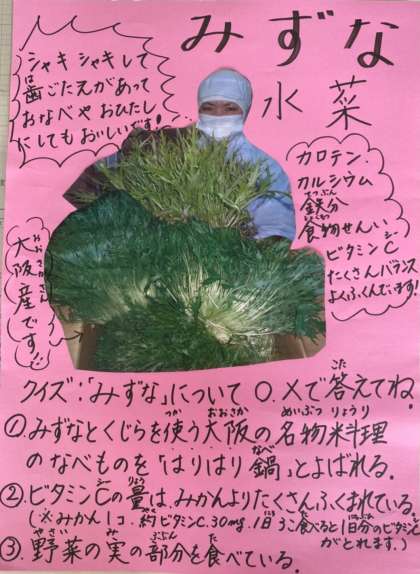 みずな
水菜
シャキシャキして
歯ごたえがあって
おなべやおひたし
にしてもおいしいです!
カロテン.
カルシウム
鉄分
てつぶん
食物せんい
ビタミンC
たくさんバランス
よくふくんでいます!
大阪産です!!
おおさかさん
クイズ:「みずな」について○.×で答えてね.
こた
①.みずなとくじらを使う大阪の名物料理
つか おおさか めいぶつ りょうり
のなべものを「はりはり鍋」とよばれる.
なべ
②.ビタミンCの量は.みかんよりたくさんふくまれている.
りょう
(※みかん1コ.約ビタミンC.30mg.1日3こ食べると1日分のビタミンC
がとれます.)
③.野菜の実の部分を食べている.
やさい み ぶぶん た